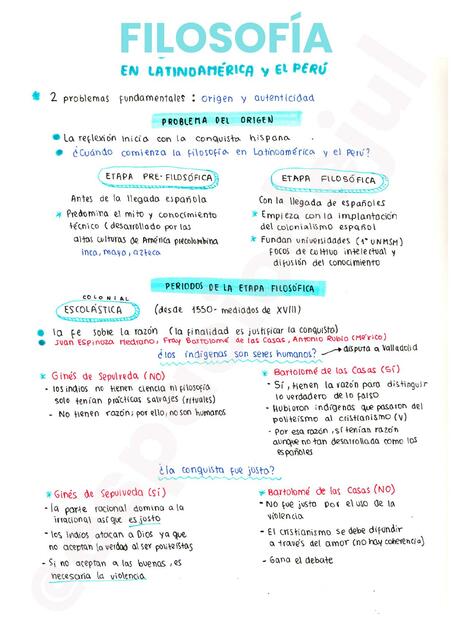 FILOSOFÍA
EN LATINOAMÉRICA Y EL PERÚ
* 2 problemas fundamentales : origen y autenticidad
PROBLEMA DEL ORIGEN
• La reflexión inicia con la conquista hispana .
• ¿Cuándo comienza la filosofía en Latinoamérica y el Perú?
ETAPA PRE-FILOSÓFICA
Antes de la llegada española
* Predomina el mito y conocimiento
técnico (desarrollado por las
altas culturas de América precolombina
inca, maya, azteca
ETAPA FILOSÓFICA
Con la llegada de españoles
* Empieza con la implantación
del colonialismo español
* Fundan universidades (1° UNMSM)
focos de cultivo intelectual y
difusión del conocimiento
PERIODOS DE LA ETAPA FILOSÓFICA
COLONIAL
ESCOLÁSTICA (desde 1550- mediados de XVIII)
• la fe sobre la razón (la finalidad es justificar la conquista)
• Juan Espinoza Medrano, Fray Bartolomé de las Casas, Antonio Rubio (México)
¿los indígenas son seres humanos? → disputa a Valladolid
* Ginés de Sepulveda (NO)
- los indios no tienen ciencia ni filosofía
solo tenían prácticas salvajes (rituales)
- No tienen razón; por ello, no son humanos
* Bartolomé de las Casas (SÍ)
- Sí, tienen la razón para distinguir
lo verdadero de lo falso
- Hubieron indígenas que pasaron del
politeísmo al cristianismo (V)
- Por esa razón, sí tenían razón
aunque no tan desarrollada como los
españoles
¿la conquista fue justa?
* Ginés de Sepulveda (SÍ)
- la parte racional domina a la
irracional así que es justo
- los indios atacan a Dios ya que
no aceptan la verdad al ser politeístas
- Si no aceptan a las buenas, es
necesaria la violencia
* Bartolomé de las Casas (NO)
- No fue justa por el uso de la
violencia
- El cristianismo se debe difundir
a través del amor (no hay coherencia)
- Gana el debate